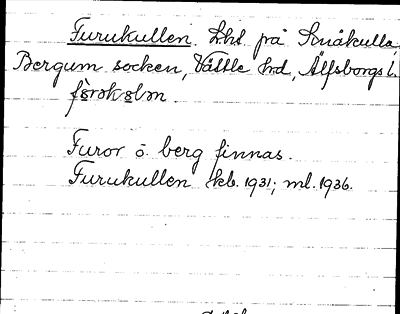 Furukullen. Lht på Småkulla,
Bergum socken, Vättle hd, Älfsborgs l.
Furor o. berg finnas.
Furukullen kb. 1931; ml. 1936.